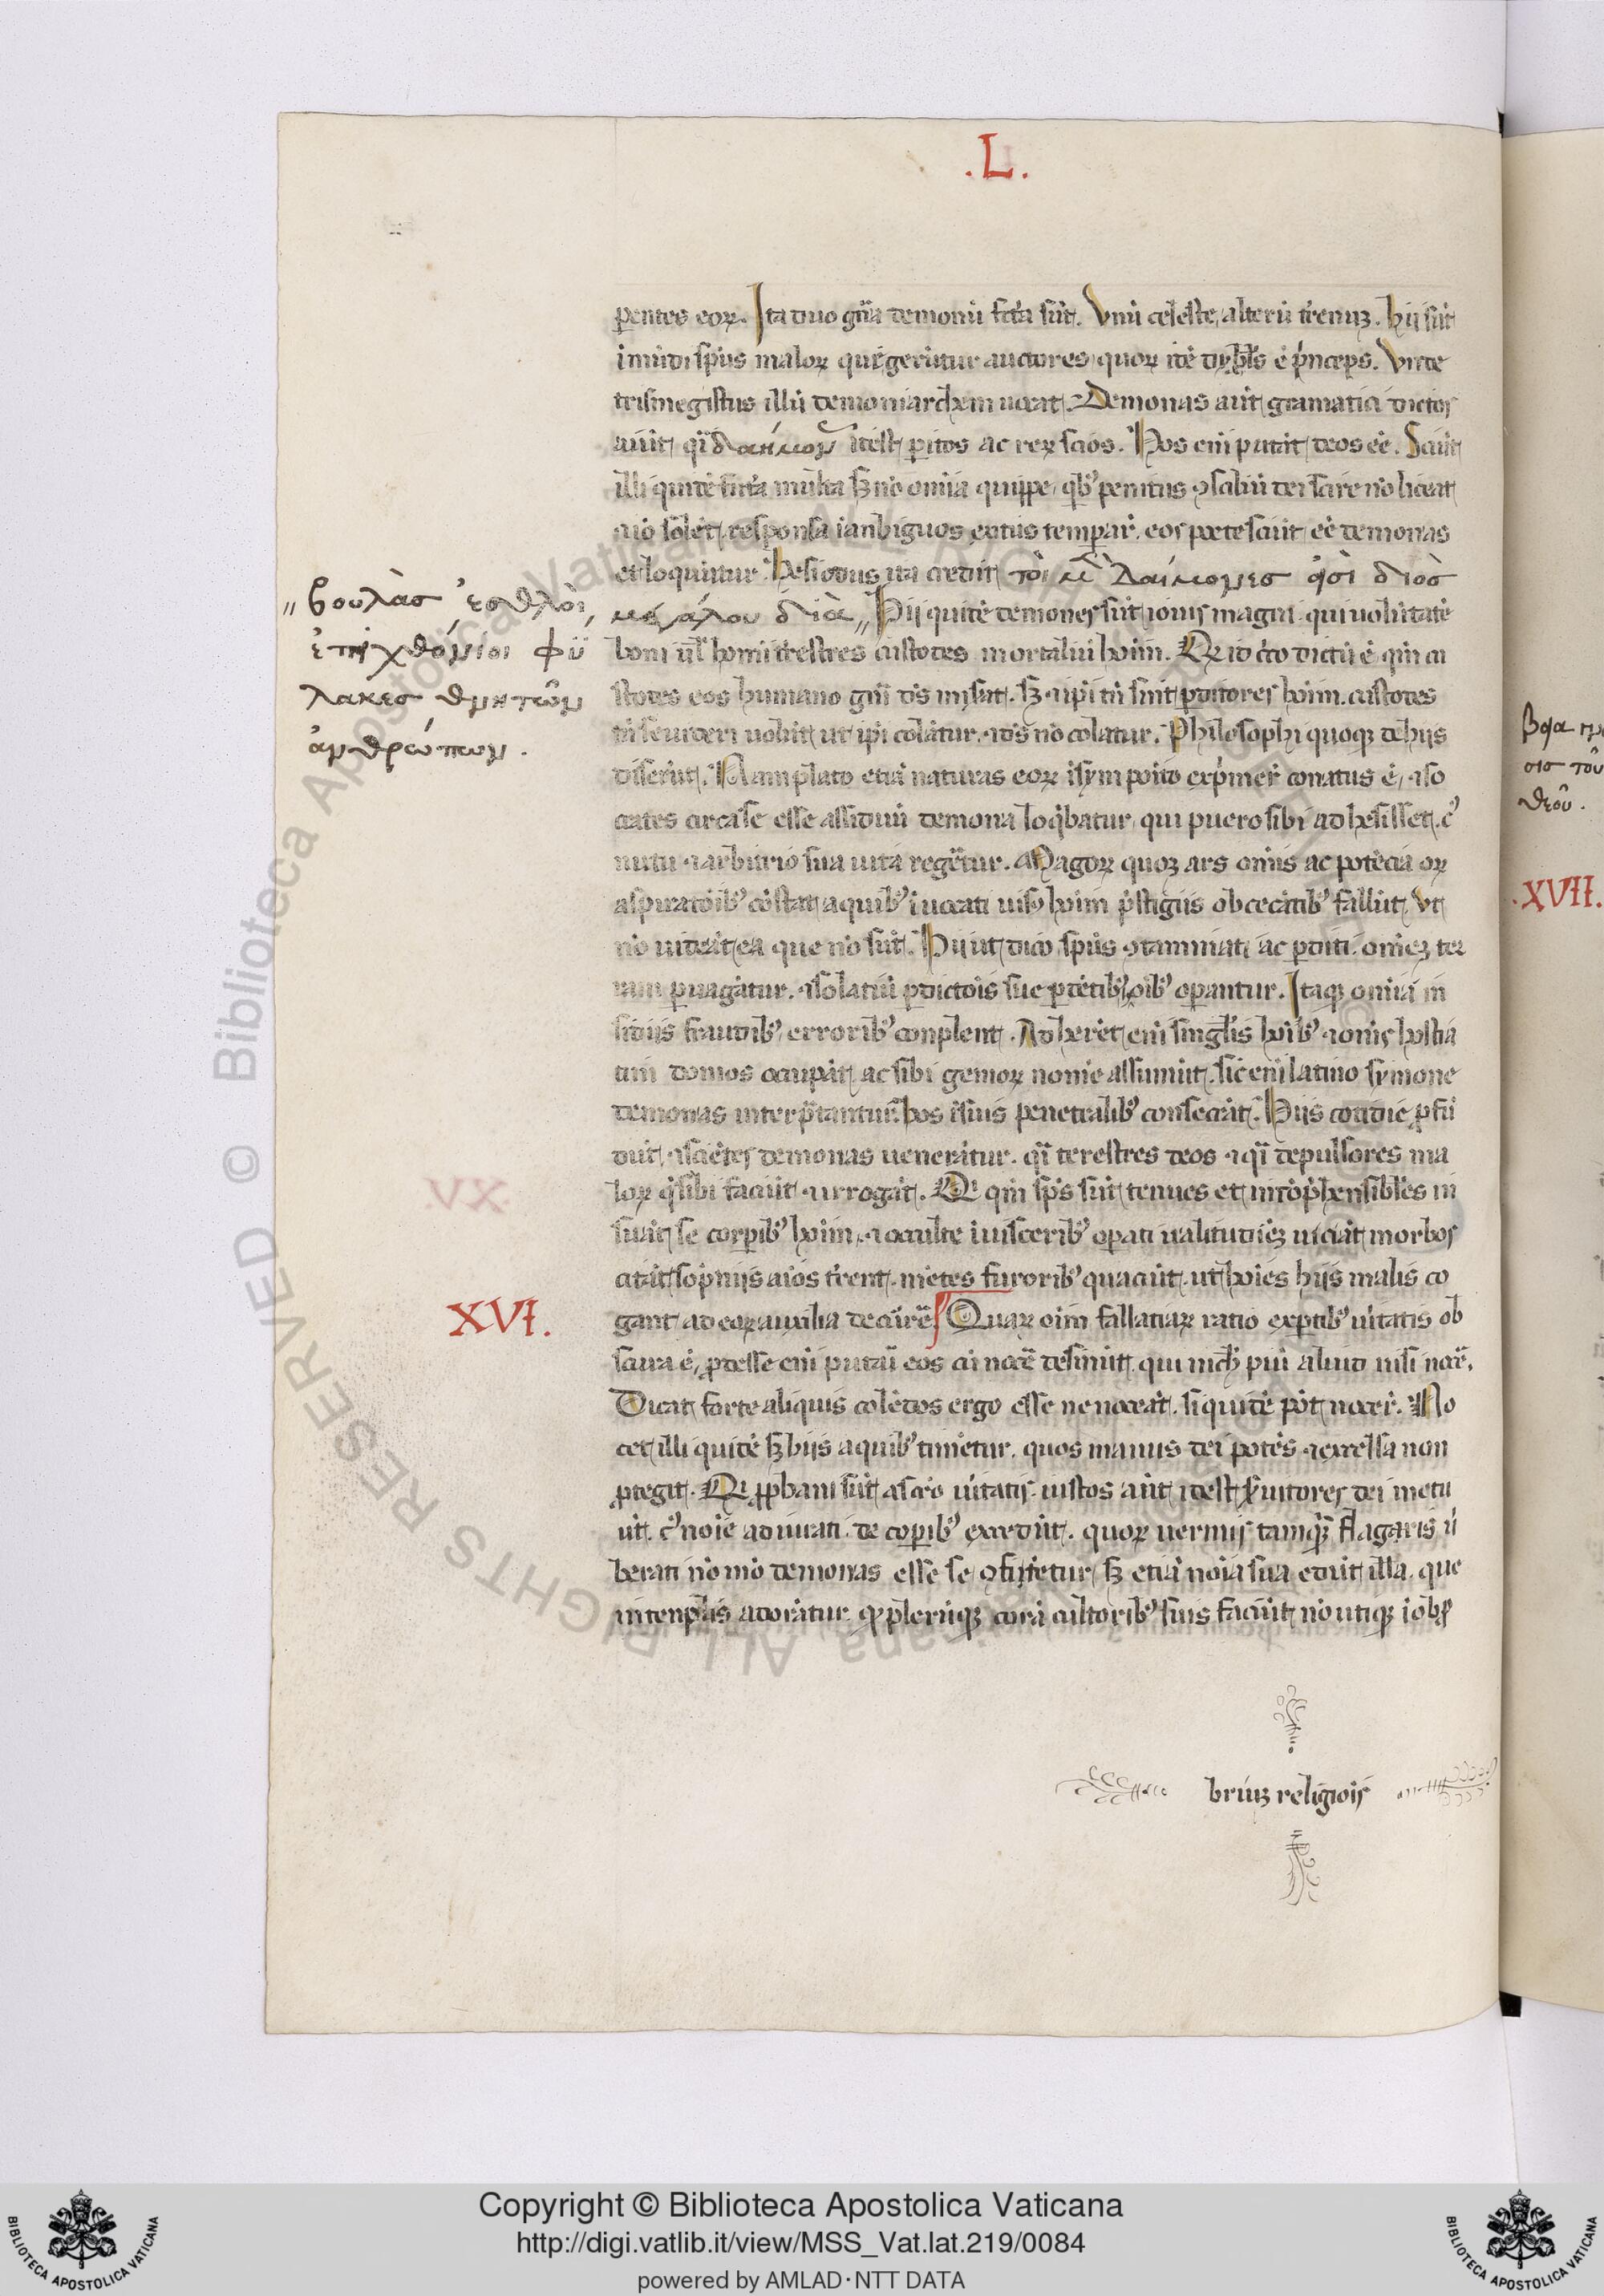 .L.
pentes eoꝝ. Ita duo gn̄a demonū fcā sūt. Vnū celeste, alterū tr̄enuꝫ. hij sūt
īmūdi sp̄us maloꝝ que gerūtur auctores, quoꝝ idē dyabl̓s ē p̓nceps. Vnde
trismegistus illū demoniarchem uocat. Demonas aūt gramatici dictos
aiūt q̄i δαήμον idest peritos ac reꝝ scios. Hos eni putāt deos eē. Sciūt
illi quidē fut̄a multa sꝫ nō omīa quippe, qb᾽ penitus ꝯsiliū dei scire nō liceat
et loquūtur. Hesiodus ita credit τοὶ μὲν Δαίμονες εἰσὶ διὸσ
μεγάλου διὰ„ Hij quidē demones sūt iouis magni. qui uolūtatē
„ βουλὰσ ἐσθλοὶ,
ἐπιχθόνιοι φυ
λακεσ θνητῶν
ἀνθρώπων.
stotes eos humano gn̄i d̄s miserat. sꝫ ⁊ ipi cū sint pditores hoīm. custodes
tn̄ se uideri uolūt ut ipi colātur. ⁊ d̄s nō colatur. Philosophi quoqꝫ de hijs
diserūt. Nam plato etiā naturas eoꝝ ī sympoīto exp̓mer̄ conatus ē, ⁊ so
crates circa se esse assiduū demona loq̄batur, qui puero sibi adhesisset. c᾽
nutu ⁊ arbitrio sua uita reger̄tur. Magoꝝ quoꝫ ars omīs ac potēcia oꝝ
aspiratōib᾽ cōstat aquib᾽ īuocati uisꝰ hoīm p̄stigiis obcecātib᾽ fallūt. Vt
nō uideāt ea que nō sūt. Hij ut dico sp̄us ꝯtaminati ac pditi. omēꝫ ter
ram puagātur. ⁊ solatiū pdictōis sue pdētib᾽ oīb᾽ operantur. Itaqꝫ omīa in
sidiis fraudib᾽ errorib᾽ conplent. Adherēt eni singl̓is hoīb᾽ ⁊ om̄s hostia
tim domos occupāt ac sibi genioꝝ nomīe assumūt. sic eni latino s̄mone
demonas interp̄tantur. hos ī suis penetralib᾽ consecrāt. Hijs cotidie ꝓfū
dūt. ⁊ sciētes demonas uenerātur. q̄i terestres deos ⁊ q̄i depulsores ma
loꝝ q̄s ipi faciūt ⁊ irrogāt. Q̄ qm̄ sp̄s sūt tenues et incōp̓hensibiles in
suāt se corpib᾽ hoīm. ⁊ occulte ī uiscerib᾽ operati ualitudiēꝫ uiciāt morbos
citāt sōpniis aīos tr̄ent. mētes furorib᾽ quaciūt. ut hoīes hijs malis co
XVI.
gant ad eoꝝ auxilia decurre Quaꝝ oīm fallatiaꝝ ratio expertib᾽ ūitatis ob
scura ē, prodesse eni putāt eos cū nocē desinūt. qui nich̄ pn̄t aliud nisi nocē.
Dicat forte aliquis colēdos ergo esse ne noceāt. siquidē pōt nocēr. No
cēt illi quidē sꝫ hijs aquib᾽ timētur. quos manus dei potēs ⁊ excelsa non
ꝓtegit. Q ꝓphani sūt a sacro ūitatis. iustos aūt idest c̄ultores dei metu
ūt. c᾽ noīe adiurati. de corpib᾽ excedūt. quoꝝ uermis tamqꝫ flagaris ū
berati nō mō demonas esse se ꝯfitētur, sꝫ etiā noīa sua edūt illa, que
in tenplis adorātur. qꝫ plerūqꝫ corā cultorib᾽ suis faciūt nō utiqꝫ ī ob
brūꝫ religiōis
XVII.
θεοῦ.
Copyright © Biblioteca Apostolica Vaticana
http://digi.vatlib.it/view/MSS_Vat.lat.219/0084
powered by AMLAD·NTT DATA
BIBLIOTECA APOSTOLICA VATICANA
BIBLIOTECA APOSTOLICA VATICANA